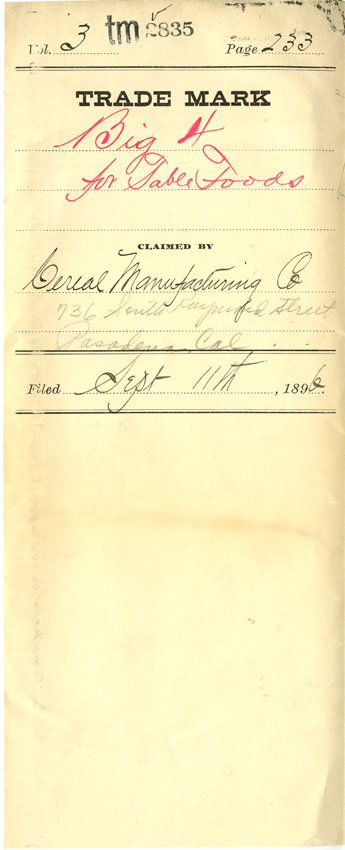 Vol. 3 tm 2835 Page 233
TRADE MARK
Big 4
for Table Foods
CLAIMED BY
Cereal Manufacturing Co
736 South Raymond Street
Pasadena Cal
Filed Sept 11th, 1896.